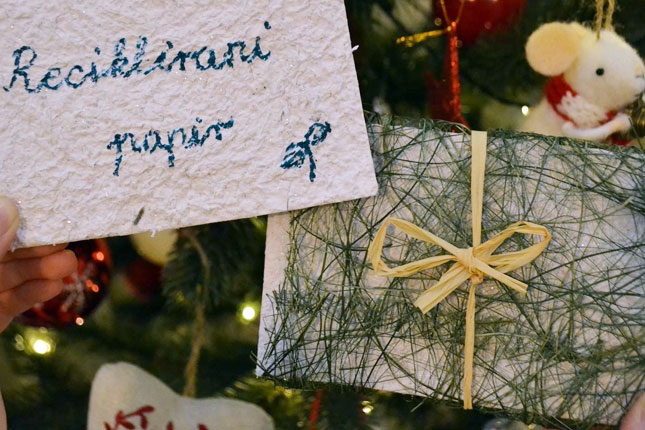 Reciklirani
papir